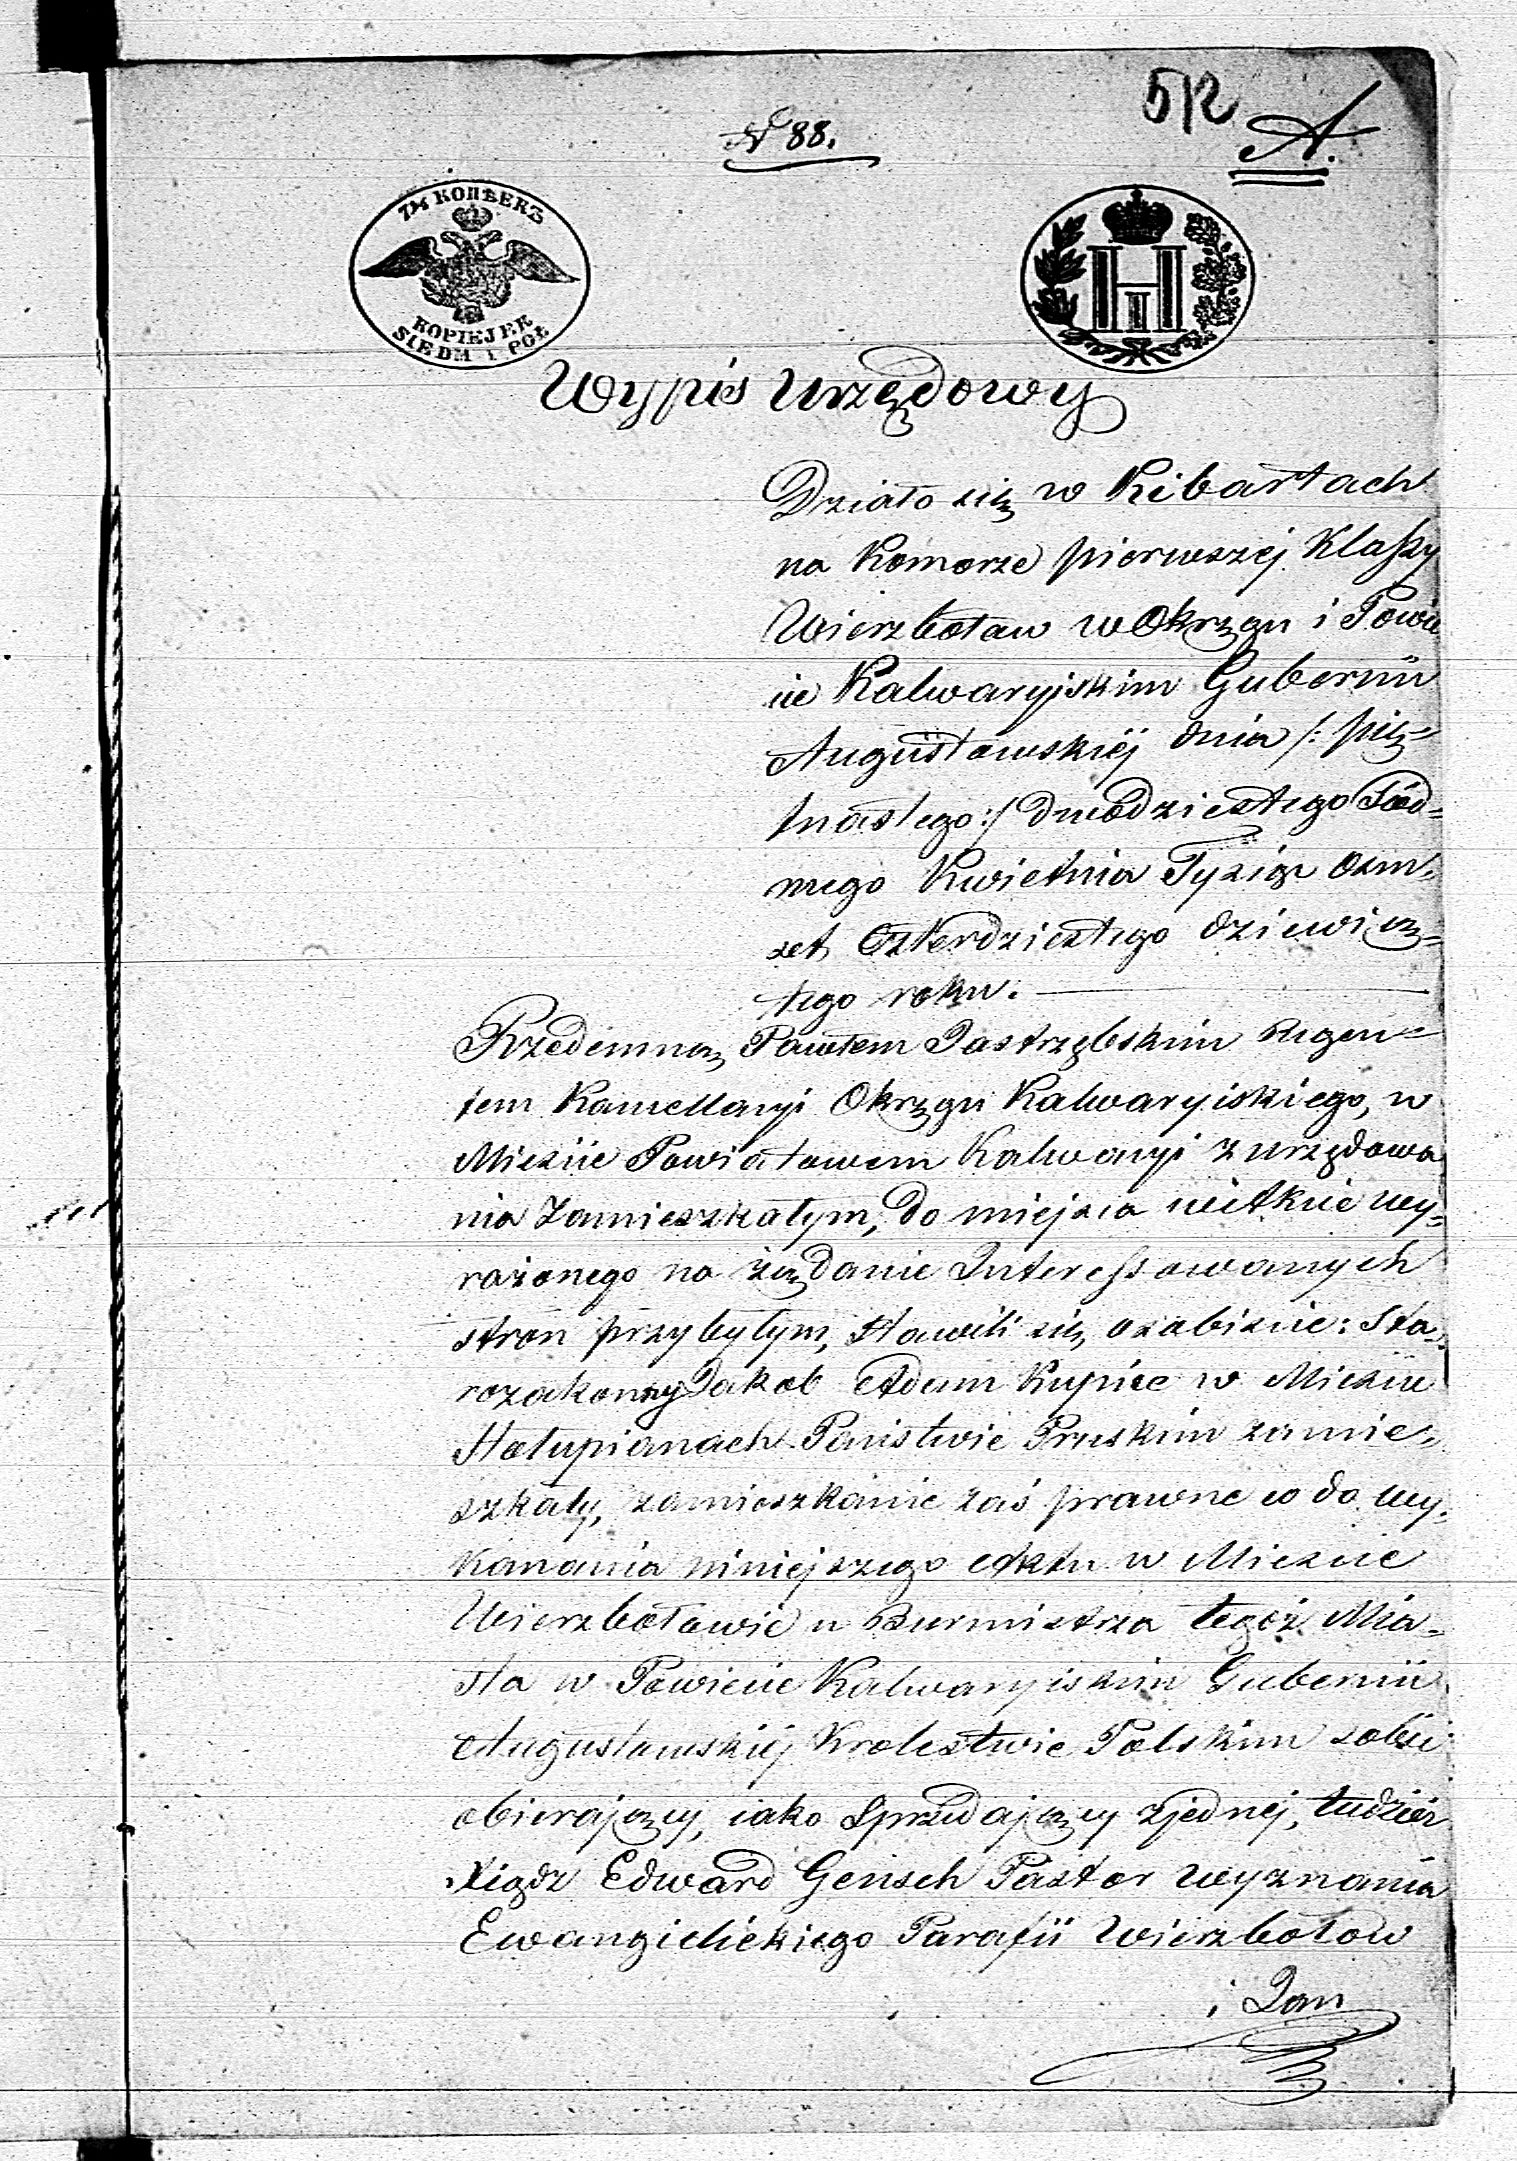 512
№ 88.
A.
7½ КОПѢЕКЪ
KOPIEJEK
SIEDM i PÓŁ
Wypis Urzędowy
Działo się w Kibartach
na Komorze pierwszej Klassy
Wierzbołow w Okręgu i Powie
cie Kalwaryjskim Gubernii
Augustowskiéj dnia /: pię-
tnastego :/ dwódziestego Siód-
mego Kwietnia Tysiąc ośm-
set Czterdziestego dziewią-
tego roku. —
Przedemną Pawłem Jastrzębskim Regen-
tem Kancellaryi Okręgu Kalwaryiskiego, w
Mieście Powiatowem Kalwaryi z urzędowa
nia Zamieszkałym, do miejsca wstępie wy-
rażonego na żądanie Interessowanych
stron przybyłym, stawili się osobiście: Sta-
rozakonny Jakob Adam Kupiec w Mieście
Stołupianach Państwie Pruskim zamie-
szkały, zamieszkanie zaś prawne co do wy-
konania niniejszego Aktu w Mieście
Wierzbołowie u Burmistrza tegoż Mia-
sta w Powiecie Kalwaryiskim Gubernii
Augustowskiéj Królestwie Polskim sobie
obierający, iako Sprzedający z jednej, tudzież
Xiądz Edward Gensch Pastor wyznania
Ewangielickiego Parafii Wierzbołow
i Jan